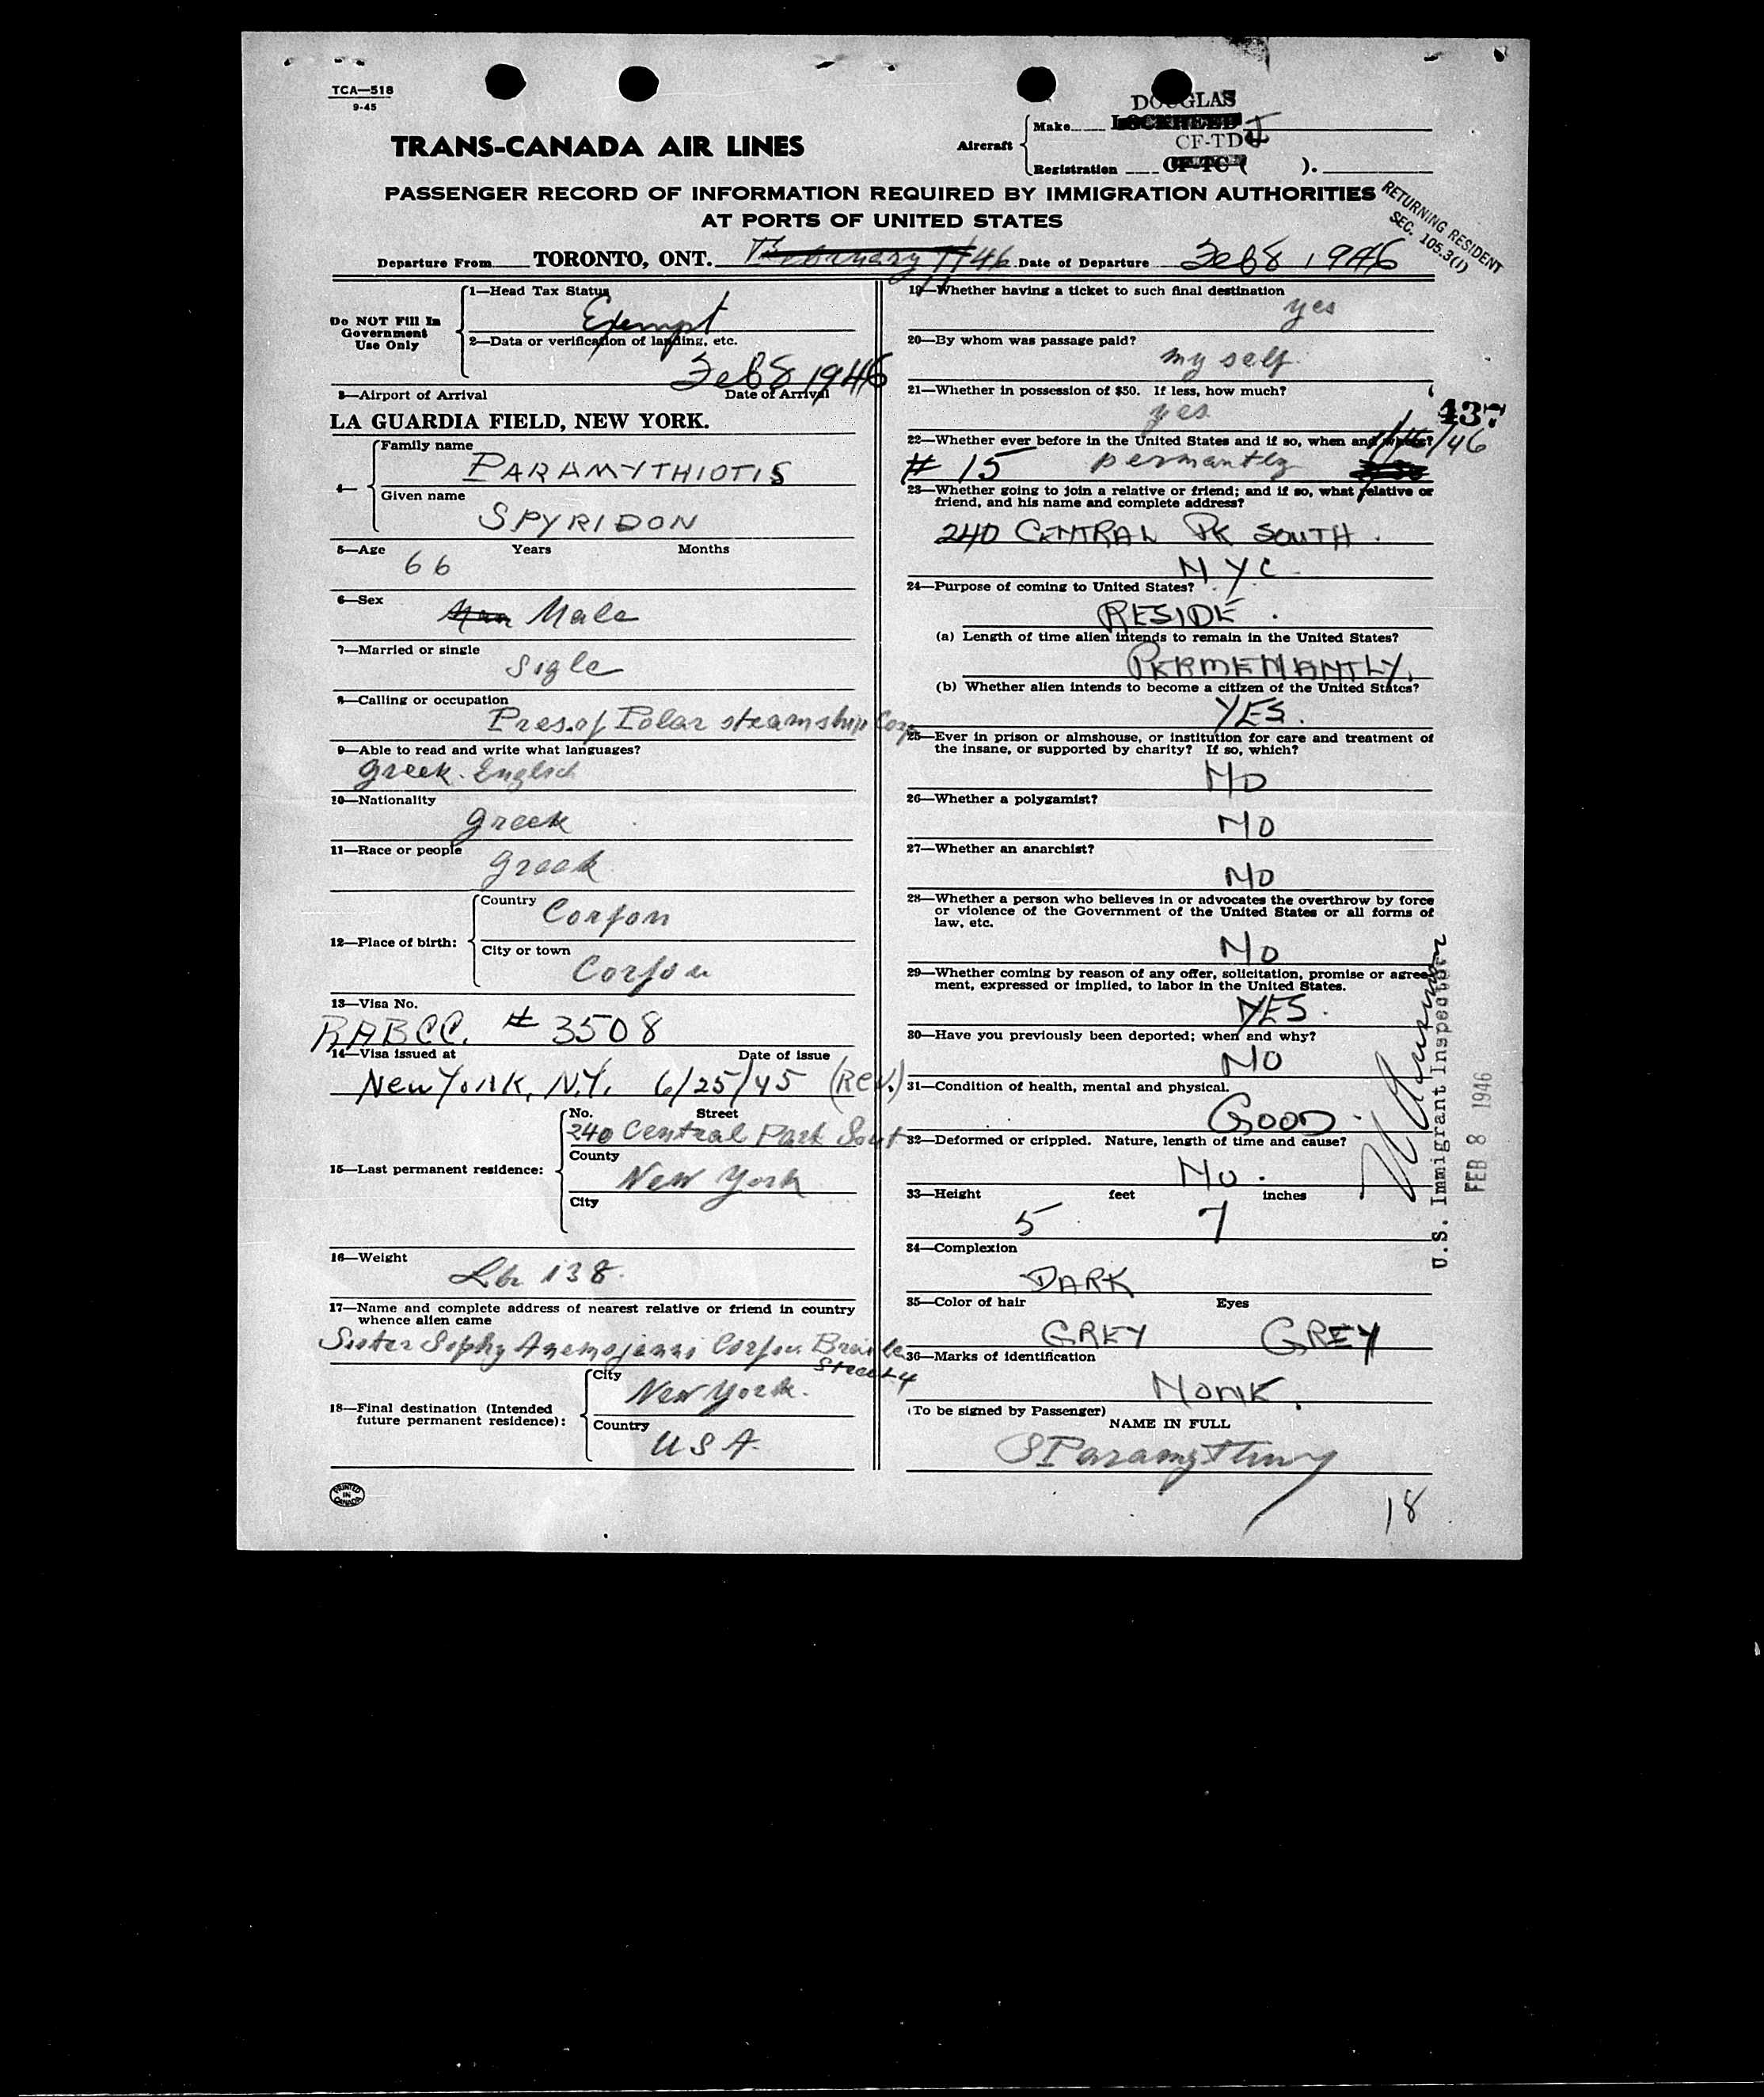 TCA—518
9-45
TRANS-CANADA AIR LINES
Aircraft
Make DOUGLAS
LOCKHEED
CF-TDJ
Registration CF-TC- ( ).
PASSENGER RECORD OF INFORMATION REQUIRED BY IMMIGRATION AUTHORITIES
AT PORTS OF UNITED STATES
RETURNING RESIDENT
SEC. 105.3(1)
Departure From TORONTO, ONT. February 46 Date of Departure Feb 8 1946
Do NOT Fill In
Government
Use Only
1—Head Tax Status
Exempt
2—Data or verification of landing, etc.
Feb 8 1946
3—Airport of Arrival Date of Arrival
LA GUARDIA FIELD, NEW YORK.
4—
Family name
PARAMYTHIOTIS
Given name
SPYRIDON
5—Age Years Months
66
6—Sex
Man Male
7—Married or single
Sigle
8—Calling or occupation
Pres. of Polar steamship Corp
9—Able to read and write what languages?
Greek. English
10—Nationality
Greek
11—Race or people
Greek
12—Place of birth:
Country
Corfou
City or town
Corfou
13—Visa No.
RABCC. # 3508
14—Visa issued at Date of issue
New York, N.Y. 6/25/45 (Rev.)
15—Last permanent residence:
No. Street
240 Central Park Sout
County
New York
City
16—Weight
Lb 138.
17—Name and complete address of nearest relative or friend in country
whence alien came
Sister Sophy Anemojanni Corfou
Street 4
18—Final destination (Intended
future permanent residence):
City
New York.
Country
USA.
PRINTED
IN
CANADA
19—Whether having a ticket to such final destination
yes
20—By whom was passage paid?
my self
21—Whether in possession of $50. If less, how much?
yes
437
22—Whether ever before in the United States and if so, when and where?
# 15 permantly /46
23—Whether going to join a relative or friend; and if so, what relative or
friend, and his name and complete address?
240 CENTRAL PK SOUTH.
NYC.
24—Purpose of coming to United States?
RESIDE.
(a) Length of time alien intends to remain in the United States?
PERMENANTLY.
(b) Whether alien intends to become a citizen of the United States?
YES.
25—Ever in prison or almshouse, or institution for care and treatment of
the insane, or supported by charity? If so, which?
NO
26—Whether a polygamist?
NO
27—Whether an anarchist?
NO
28—Whether a person who believes in or advocates the overthrow by force
or violence of the Government of the United States or all forms of
law, etc.
NO
29—Whether coming by reason of any offer, solicitation, promise or agree-
ment, expressed or implied, to labor in the United States.
YES.
30—Have you previously been deported; when and why?
NO
31—Condition of health, mental and physical.
GOOD.
32—Deformed or crippled. Nature, length of time and cause?
NO.
33—Height feet inches
5 7
34—Complexion
DARK
35—Color of hair Eyes
GREY GREY
36—Marks of identification
NONE.
(To be signed by Passenger)
NAME IN FULL
18
U.S. Immigrant Inspector
FEB 8 1946